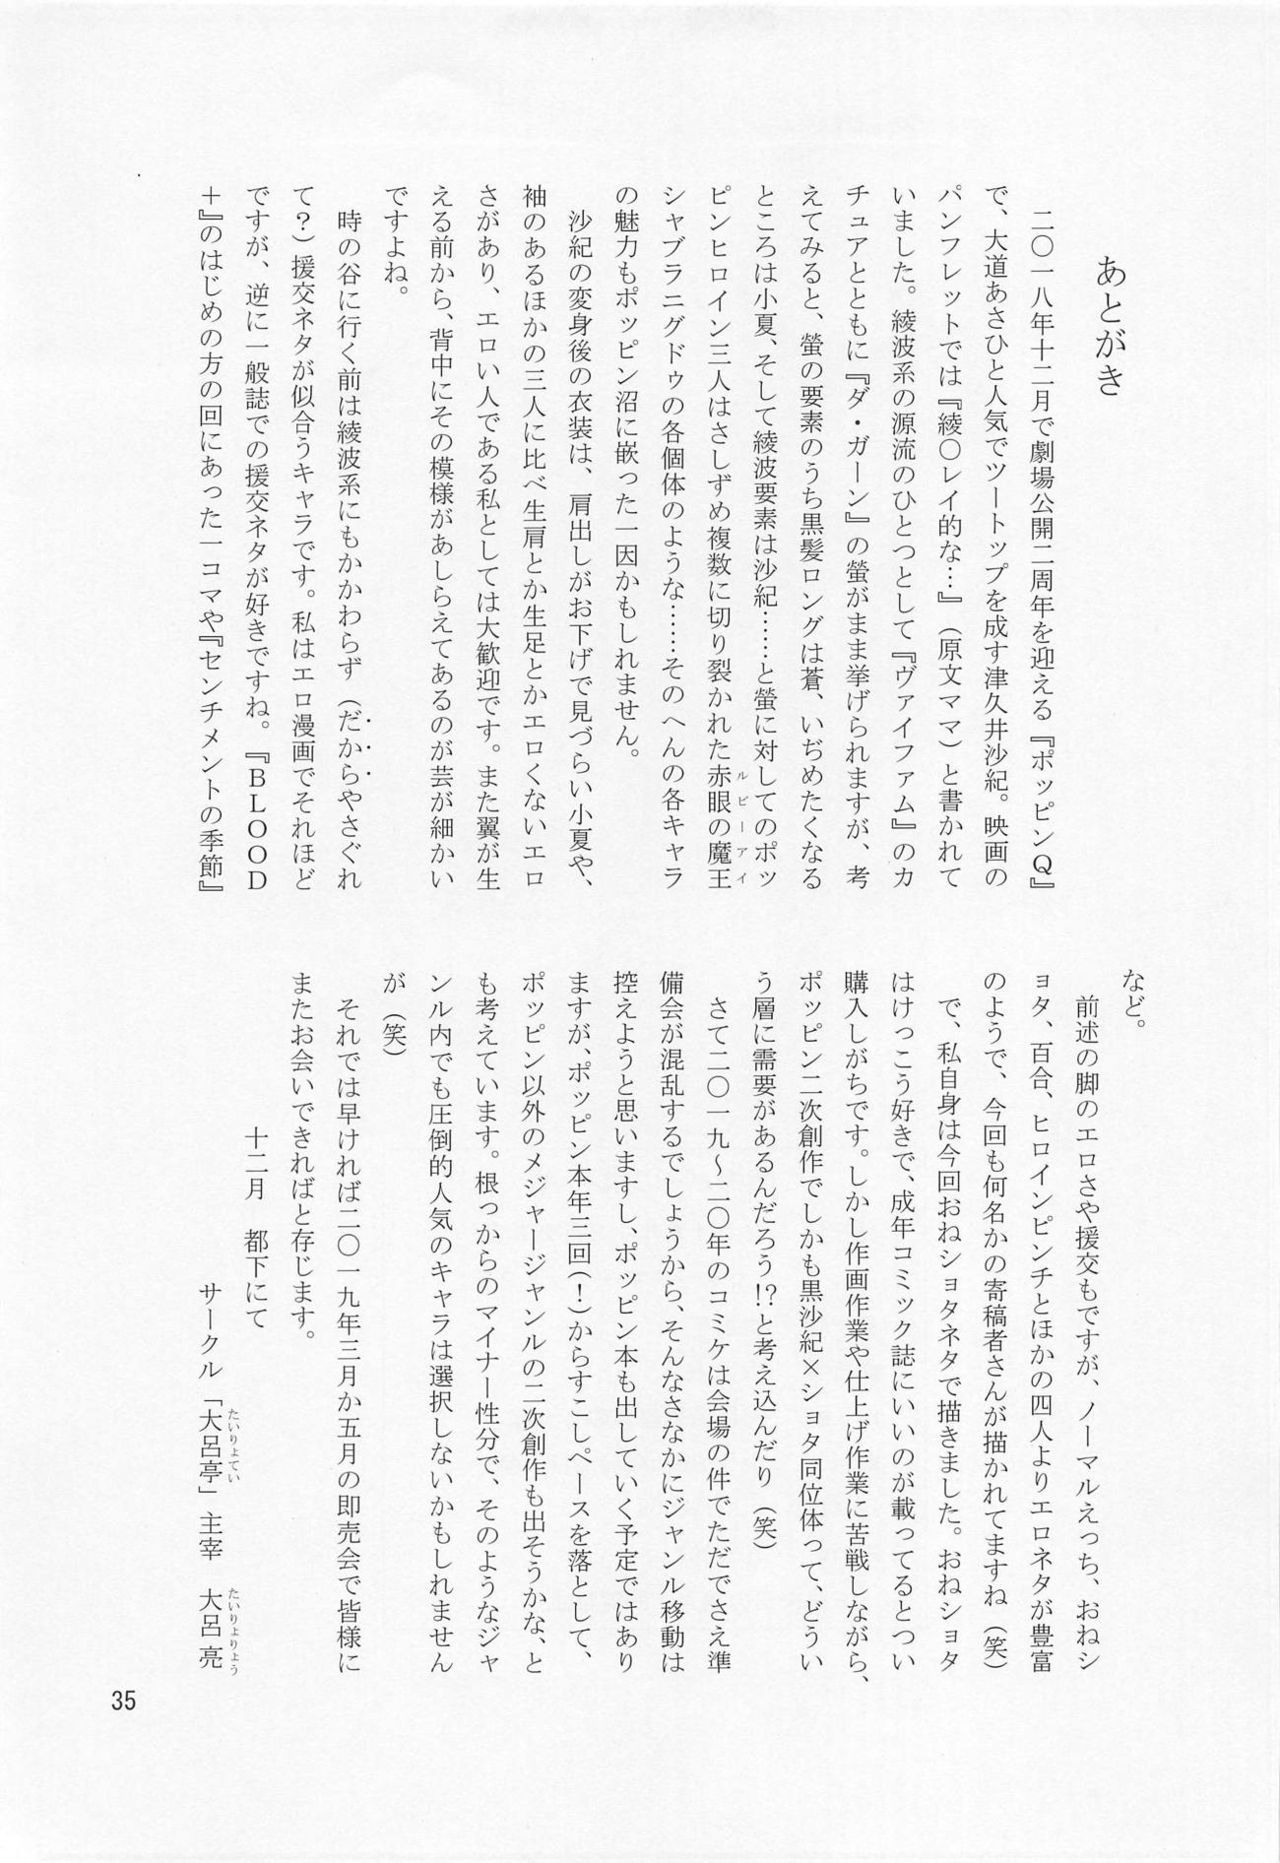 あとがき
二〇一八年十二月で劇場公開二周年を迎える『ポッピンQ』
で、大道あさひと人気でツートップを成す津久井沙紀。映画の
パンフレットでは『綾〇レイ的な…』（原文ママ）と書かれて
いました。綾波系の源流のひとつとして『ヴァイファム』のカ
チュアとともに『ダ・ガーン』の螢がまま挙げられますが、考
えてみると、螢の要素のうち黒髪ロングは蒼、いぢめたくなる
ところは小夏、そして綾波要素は沙紀……と螢に対してのポッ
ルビーアイ
ピンヒロイン三人はさしずめ複数に切り裂かれた赤眼の魔王
シャブラニグドゥの各個体のような……そのへんの各キャラ
の魅力もポッピン沼に嵌った一因かもしれません。
沙紀の変身後の衣装は、肩出しがお下げで見づらい小夏や、
袖のあるほかの三人に比べ生肩とか生足とかエロくないエロ
さがあり、エロい人である私としては大歓迎です。また翼が生
える前から、背中にその模様があしらえてあるのが芸が細かい
ですよね。
時の谷に行く前は綾波系にもかかわらず（だからやさぐれ
て？）援交ネタが似合うキャラです。私はエロ漫画でそれほど
ですが、逆に一般誌での援交ネタが好きですね。『BLOOD
＋』のはじめの方の回にあった一コマや『センチメントの季節』
など。
前述の脚のエロさや援交もですが、ノーマルえっち、おねシ
ョタ、百合、ヒロインピンチとほかの四人よりエロネタが豊富
のようで、今回も何名かの寄稿者さんが描かれてますね（笑）
で、私自身は今回おねショタネタで描きました。おねショタ
はけっこう好きで、成年コミック誌にいいのが載ってるとつい
購入しがちです。しかし作画作業や仕上げ作業に苦戦しながら、
ポッピン二次創作でしかも黒沙紀×ショタ同位体って、どうい
う層に需要があるんだろう!?と考え込んだり（笑）
さて二〇一九～二〇年のコミケは会場の件でただでさえ準
備会が混乱するでしょうから、そんなさなかにジャンル移動は
控えようと思いますし、ポッピン本も出していく予定ではあり
ますが、ポッピン本年三回(！)からすこしペースを落として、
ポッピン以外のメジャージャンルの二次創作も出そうかな、と
も考えています。根っからのマイナー性分で、そのようなジャ
ンル内でも圧倒的人気のキャラは選択しないかもしれません
が（笑）
それでは早ければ二〇一九年三月か五月の即売会で皆様に
またお会いできればと存じます。
十二月　都下にて
たいりょてい　たいりょりょう
サークル「大呂亭」主宰　大呂亮
35